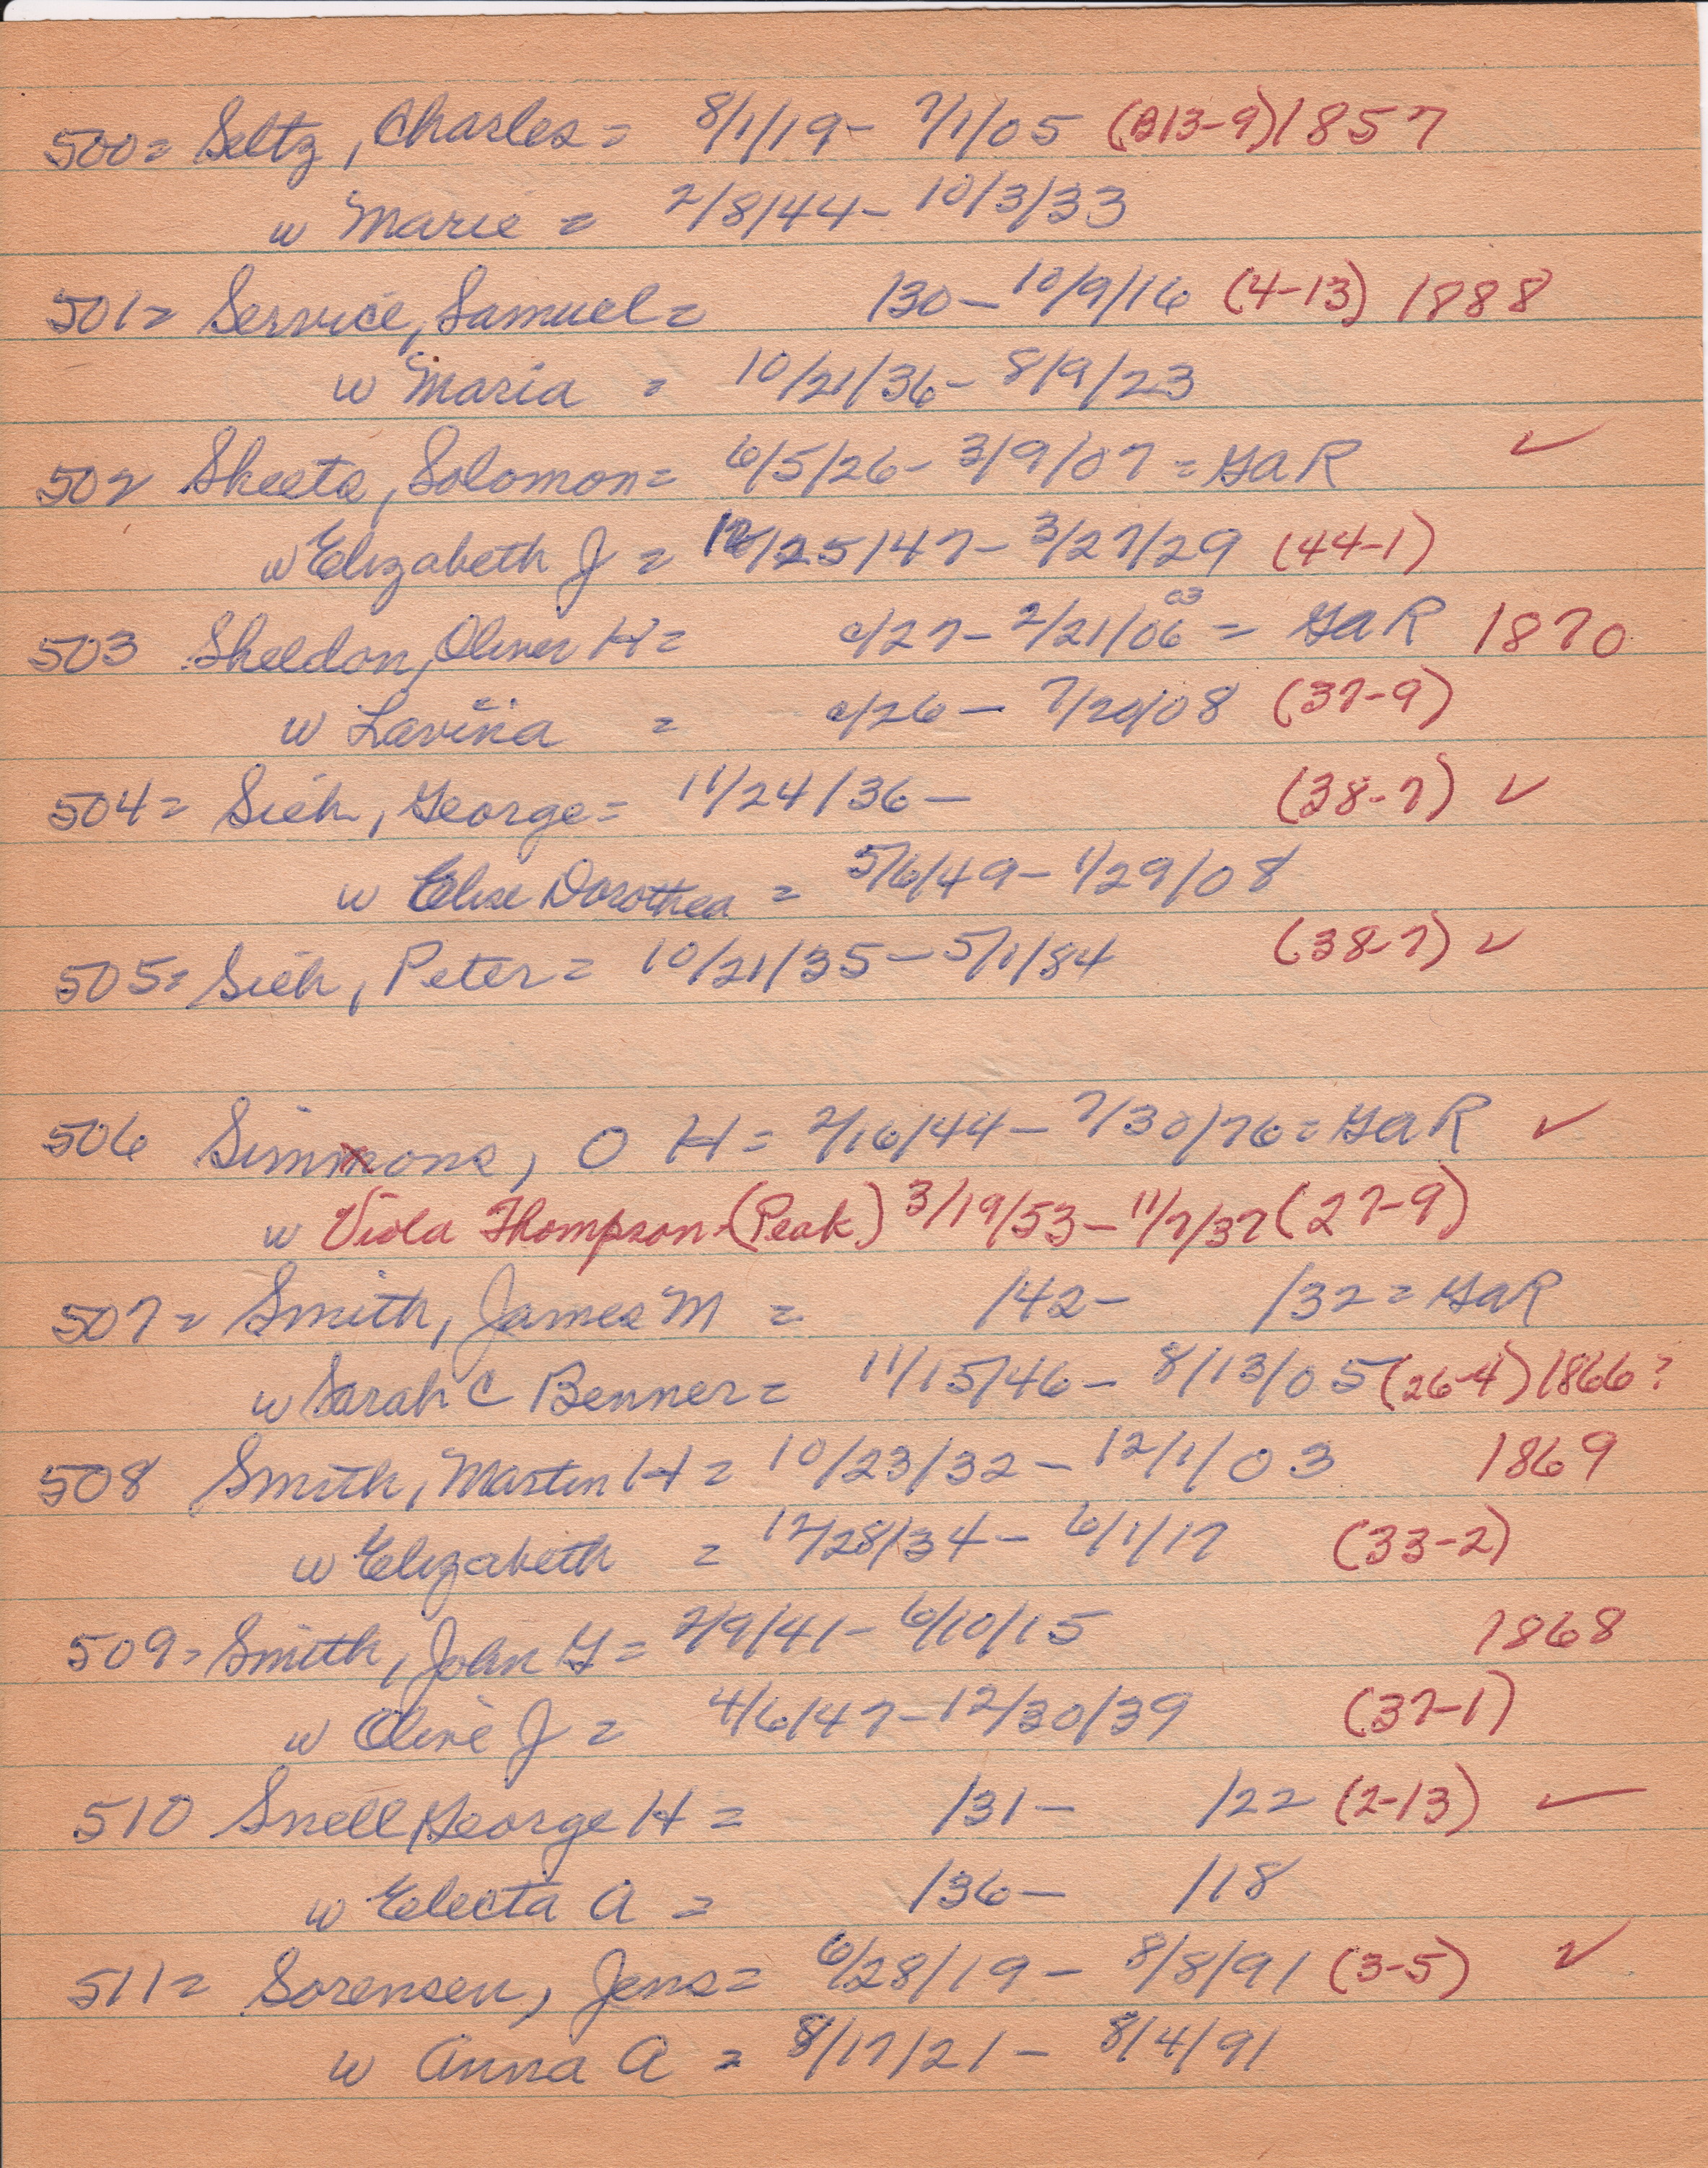 500= Seltz, Charles = 8/1/19- 7/1/05 (B13-9) 1857
w Marie = 2/8/44- 10/3/33
501= Service, Samuel = /30- 10/9/16 (4-13) 1888
w Maria = 10/21/36- 8/9/23
502 Sheets, Solomon= 6/5/26- 3/9/07 = GaR ✓
w Elizabeth J = 12/25/47- 3/27/29 (44-1)
03
503 Sheldon, Oliver H= c/27- 2/21/06 = GaR 1870
w Lavina = c/26- 7/20/08 (37-9)
504= Sieh, George= 11/24/36- (38-7) ✓
w Elise Dorothea = 5/6/49- 1/29/08
505= Sieh, Peter= 10/21/35-5/1/84 (38-7) ✓
506 Simmons, O H= 2/16/44- 7/30/76=GaR ✓
w Viola Thompson-(Peak) 3/19/53-11/7/37 (27-9)
507= Smith, James M = /42- /32=GaR
w Sarah C Benner= 11/15/46- 8/13/05 (26-4) 1866?
508 Smith, Martin H= 10/23/32- 12/1/03 1869
w Elizabeth = 12/28/34- 6/1/17 (33-2)
509= Smith, John G= 2/9/41- 6/10/15 1868
w Olive J = 4/6/47-12/30/39 (37-1)
510 Snell, George H = /31- /22 (2-13) ✓
w Electa A = /36- /18
511= Sorensen, Jens= 6/28/19- 8/8/91 (3-5) ✓
w Anna A = 8/17/21- 8/4/91